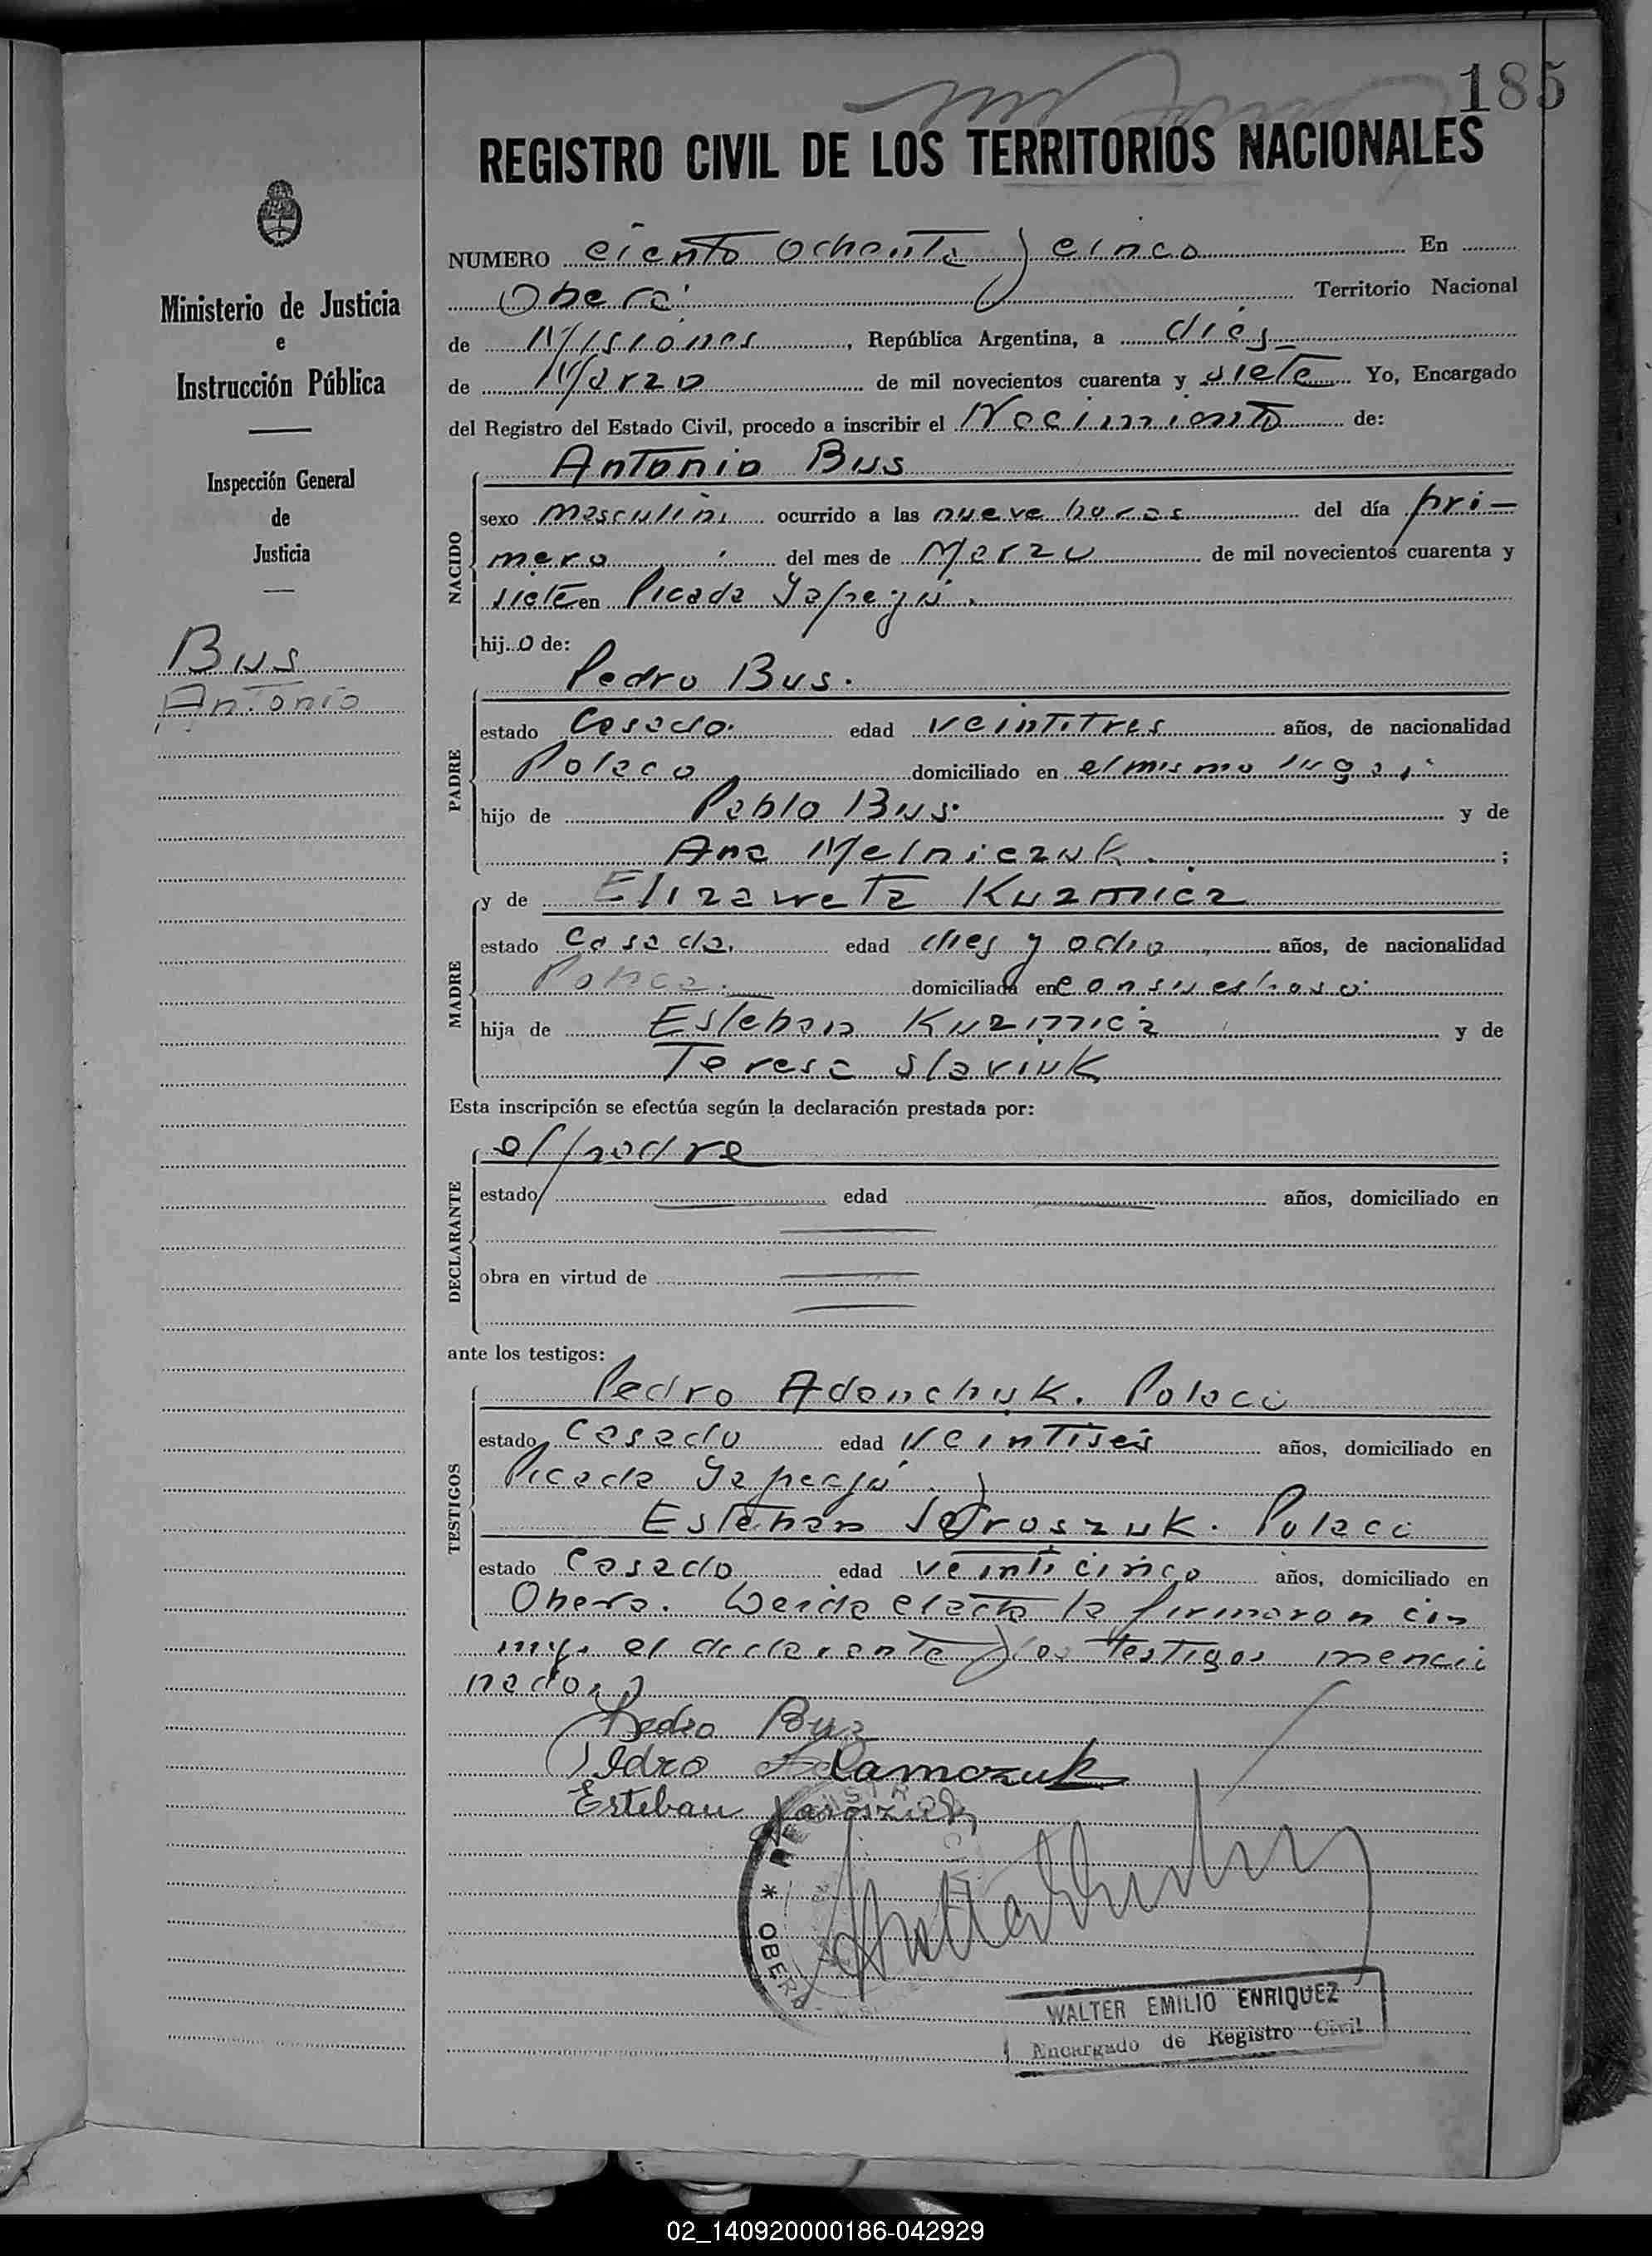 185
REGISTRO CIVIL DE LOS TERRITORIOS NACIONALES
Ministerio de Justicia
e
Instrucción Pública
Inspección General
de
Justicia
Bus
Antonio
NUMERO ciento ochenta y cinco En
Oberá Territorio Nacional
de Misiones, República Argentina, a dies
de Marzo de mil novecientos cuarenta y siete Yo, Encargado
del Registro del Estado Civil, procedo a inscribir el Nacimiento de:
NACIDO
Antonio Bus
sexo masculino ocurrido a las nueve horas del día pri-
mero del mes de Marzo de mil novecientos cuarenta y
siete en Picada Yapeyú.
hijo de:
PADRE
Pedro Bus.
estado Casado. edad veintitres años, de nacionalidad
Polaco domiciliado en el mismo lugar
hijo de Pablo Bus. y de
Ana Melniczuk. ;
MADRE
y de Elizaweta Kuzmicz
estado Casada. edad dies y ocho años, de nacionalidad
Polaca. domiciliada en con su esposo.
hija de Esteban Kuzmicz y de
Teresa Slaviuk
Esta inscripción se efectúa según la declaración prestada por:
DECLARANTE
el padre
estado edad años, domiciliado en
obra en virtud de
ante los testigos:
TESTIGOS
Pedro Adanchuk. Polaco
estado Casado edad veintiseis años, domiciliado en
Picada Yapeyú y
Esteban Jaroszuk. Polaco
estado Casado edad veinticinco años, domiciliado en
Obera. Leida el acta la firmaron con
migo el declarante y los testigos mencio
nados
Pedro Bus
Pedro Adamczuk
Esteban Jaroszuk
* OBERÁ
WALTER EMILIO ENRIQUEZ
Encargado de Registro Civil
02_140920000186-042929